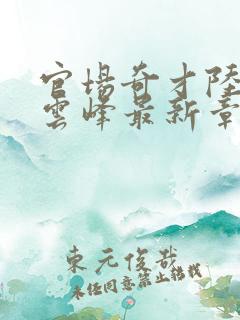 官場奇才陸
雲峰最新章
東元俊哉
未經同意禁止轉載